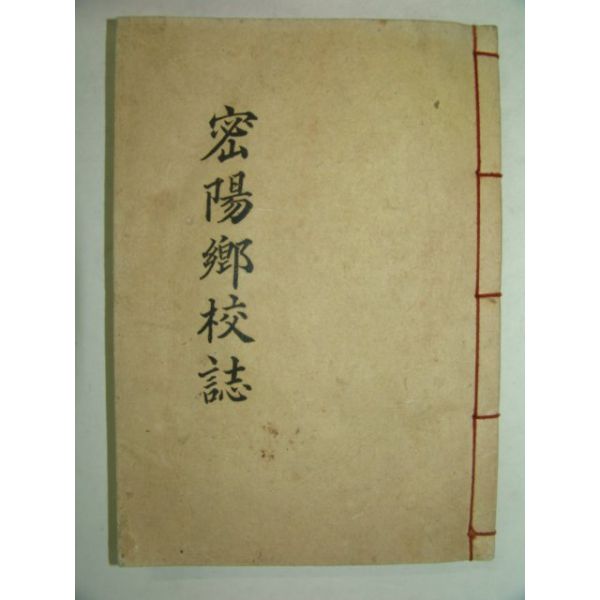 密陽鄕校誌